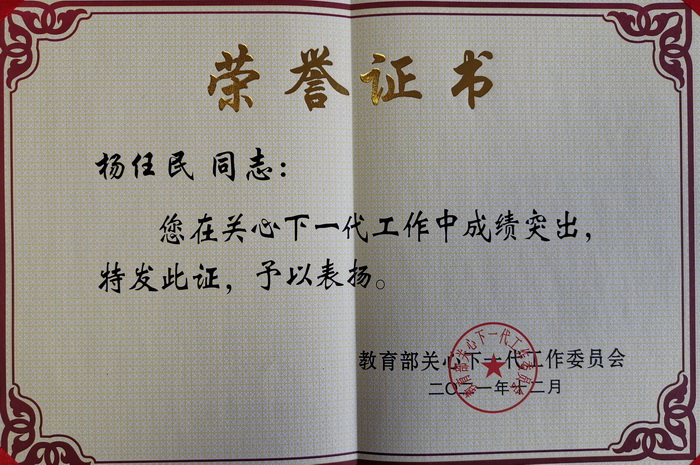 荣誉证书
杨任民 同志：
您在关心下一代工作中成绩突出，
特发此证，予以表扬。
教育部关心下一代工作委员会
二〇一一年十二月
教育部关心下一代工作委员会